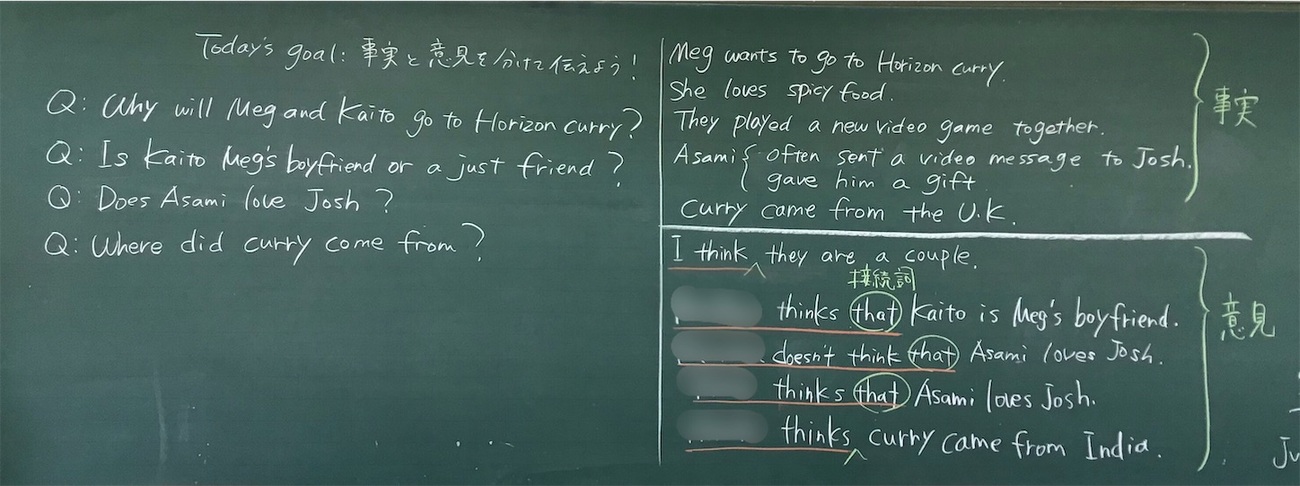 Today's goal: 事実と意見を分けて伝えよう!
Q: Why will Meg and Kaito go to Horizon curry?
Q: Is Kaito Meg's boyfriend or a just friend?
Q: Does Asami love Josh?
Q: Where did curry come from?
Meg wants to go to Horizon curry.
She loves spicy food.
They played a new video game together.
Asami { often sent a video message to Josh.
gave him a gift
Curry came from the U.K.
事実
I think ^ they are a couple.
接続詞
thinks that Kaito is Meg's boyfriend.
doesn't think that Asami loves Josh.
thinks that Asami loves Josh.
thinks ^ curry came from India.
意見